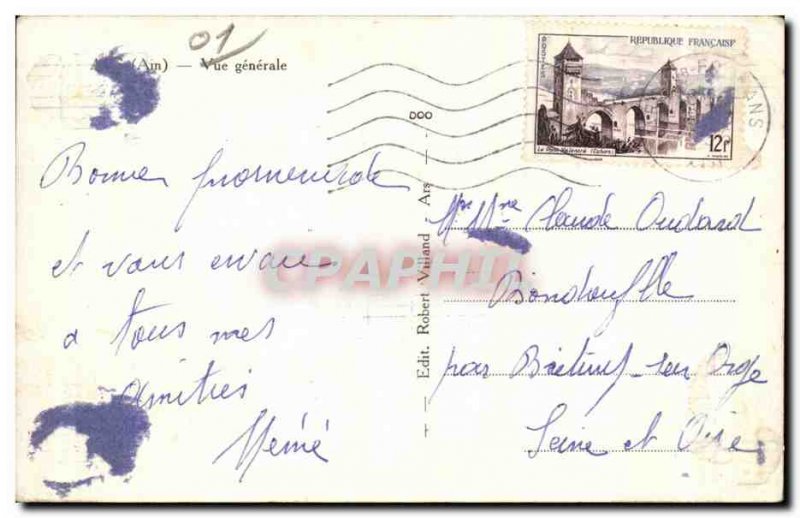 01
(Ain) — Vue générale
RÉPUBLIQUE FRANÇAISE
POSTES
12F
DOO
Bonne promenade
et vous envoie
à tous mes
amitiés
Mémé
— Edit. Robert Villand Ars —
Mr Mme Claude Oudard
Bondoufle
par Brétigny-sur-Orge
Seine et Oise
CPAPHIL